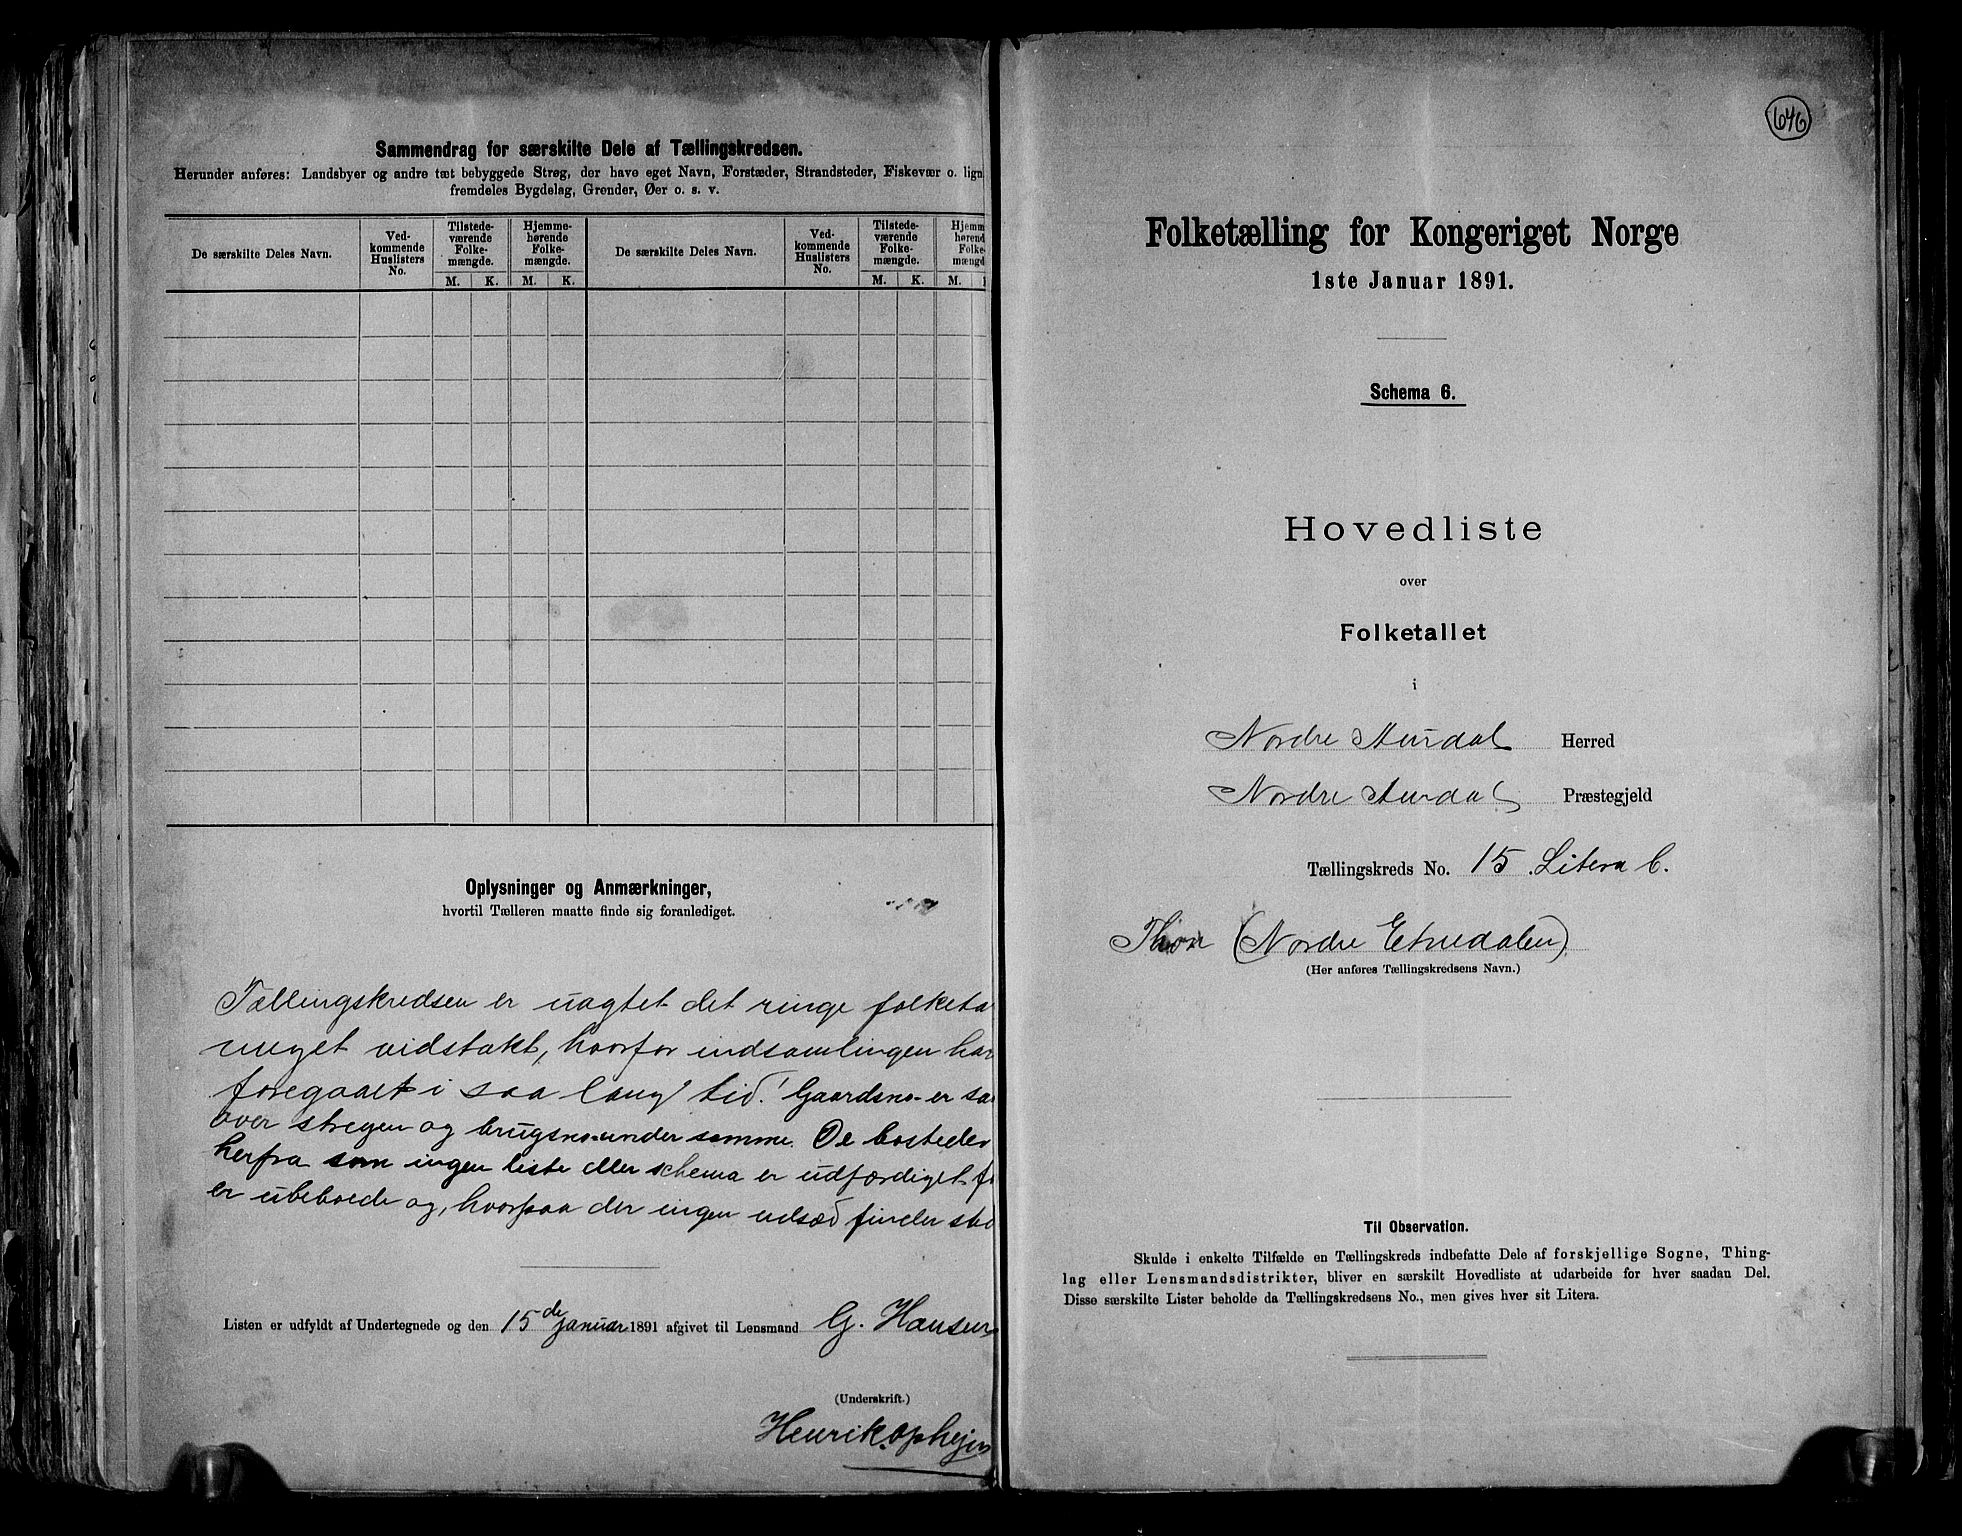 Sammendrag for særskilte Dele af Tællingskredsen.
Herunder anføres: Landsbyer og andre tæt bebyggede Strøg, der have eget Navn, Forstæder, Strandsteder, Fiskevær o. lign
fremdeles Bygdelag, Grender, Øer o. s. v.
De særskilte Deles Navn.
Ved-
kommende
Huslisters
No.
Tilstede-
værende
Folke-
mængde.
M. K.
Hjemme-
hørende
Folke-
mængde.
M. K.
De særskilte Deles Navn.
Ved-
kommende
Huslisters
No.
Tilstede-
værende
Folke-
mængde.
M. K.
Hjemm
hørend
Folke
mængd
M.
Oplysninger og Anmærkninger,
hvortil Tælleren maatte finde sig foranlediget.
Tællingskredsen er uagtet det ringe folketa
meget vidstakt, hvorfor indsamlingen har
foregaaet i saa lang tid! Gaardsno. er sa
over stregen og brugsno. under samme. De bosteder
herfra som ingen liste eller schema er udfærdiget f
er ubeboede og, hvorpaa der ingen udsæd finder sted
Listen er udfyldt af Undertegnede og den 15de januar 1891 afgivet til Lensmand G. Hansen
(Underskrift.)
Henrik Ophejm
646
Folketælling for Kongeriget Norge
1ste Januar 1891.
Schema 6.
Hovedliste
over
Folketallet
i
Nordre Aurdal Herred
Nordre Aurdal Præstegjeld
Tællingskreds No. 15 Litera C.
Thon (Nordre Etnedalen)
(Her anføres Tællingskredsens Navn.)
Til Observation.
Skulde i enkelte Tilfælde en Tællingskreds indbefatte Dele af forskjellige Sogne, Thing-
lag eller Lensmandsdistrikter, bliver en særskilt Hovedliste at udarbeide for hver saadan Del.
Disse særskilte Lister beholde da Tællingskredsens No., men gives hver sit Litera.